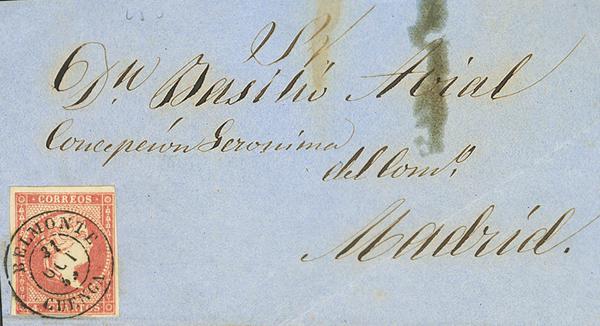 Sr.
Dn Basilio Avial
Concepción Geronima
del Comº.
Madrid.
CORREOS
BELMONTE
31
OCT
CUENCA